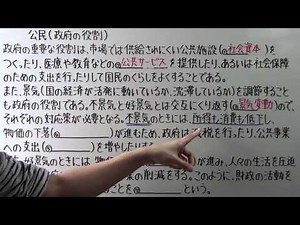 公民(政府の役割)
政府の重要な役割は、市場では供給されにくい公共施設(①社会資本)を
つくったり、医療や教育などの(②公共サービス)を提供したり、あるいは社会保障
のための支出を行ったりして国民のくらしをよくすることです。
また、景気(国の経済が活発に動いているか、沈滞しているか)を調節すること
も政府の役割である。不景気と好景気とは交互にくり返す(③景気変動)ので、
それぞれの対応策が必要となる。不景気のときには、所得も消費も低下し、
物価の下落(④ )が進むため、政府は 税を行ったり、公共事業
への支出(⑤ )を増やしたりする
好景気のときには、物価 が進み、人々の生活を圧迫
業の削減をする。このように、財政の活動を
ことを という。